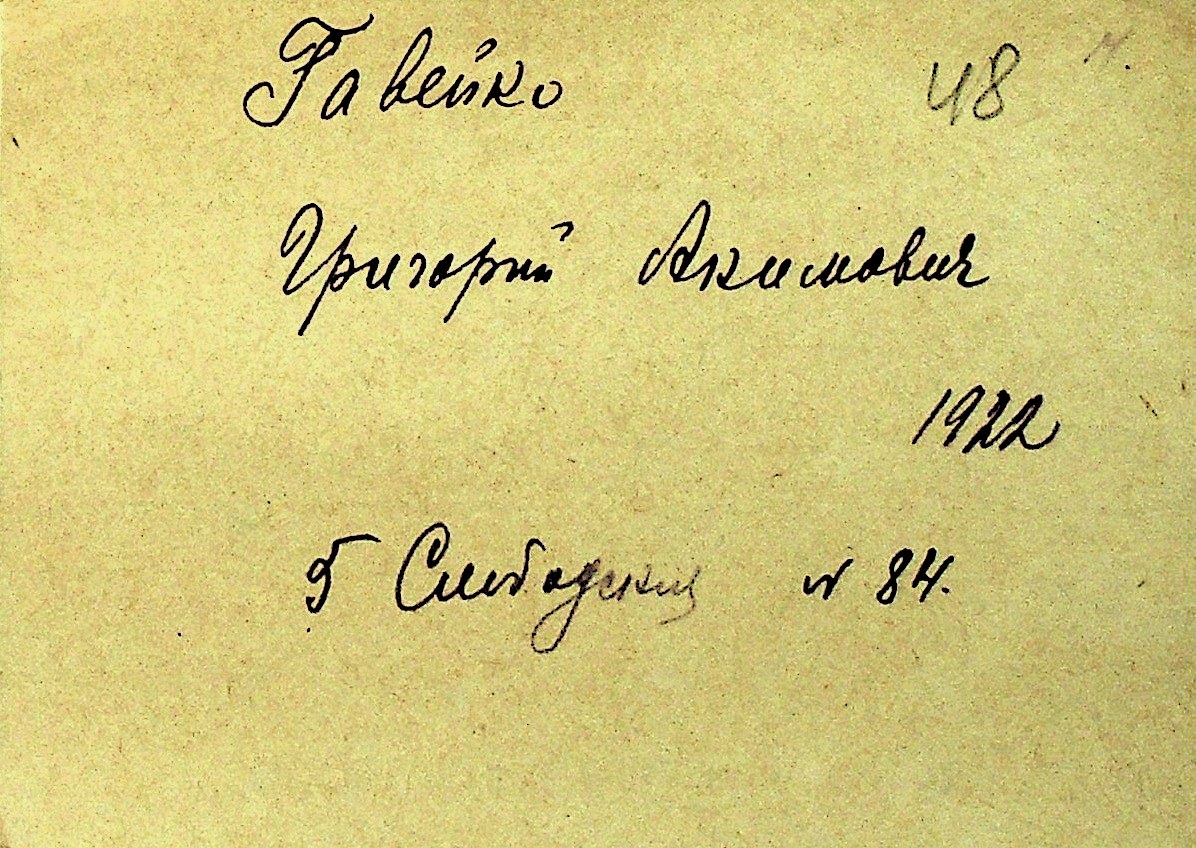 Гавейко 48
Григорий Акимович
1922
5 Слободский № 84.